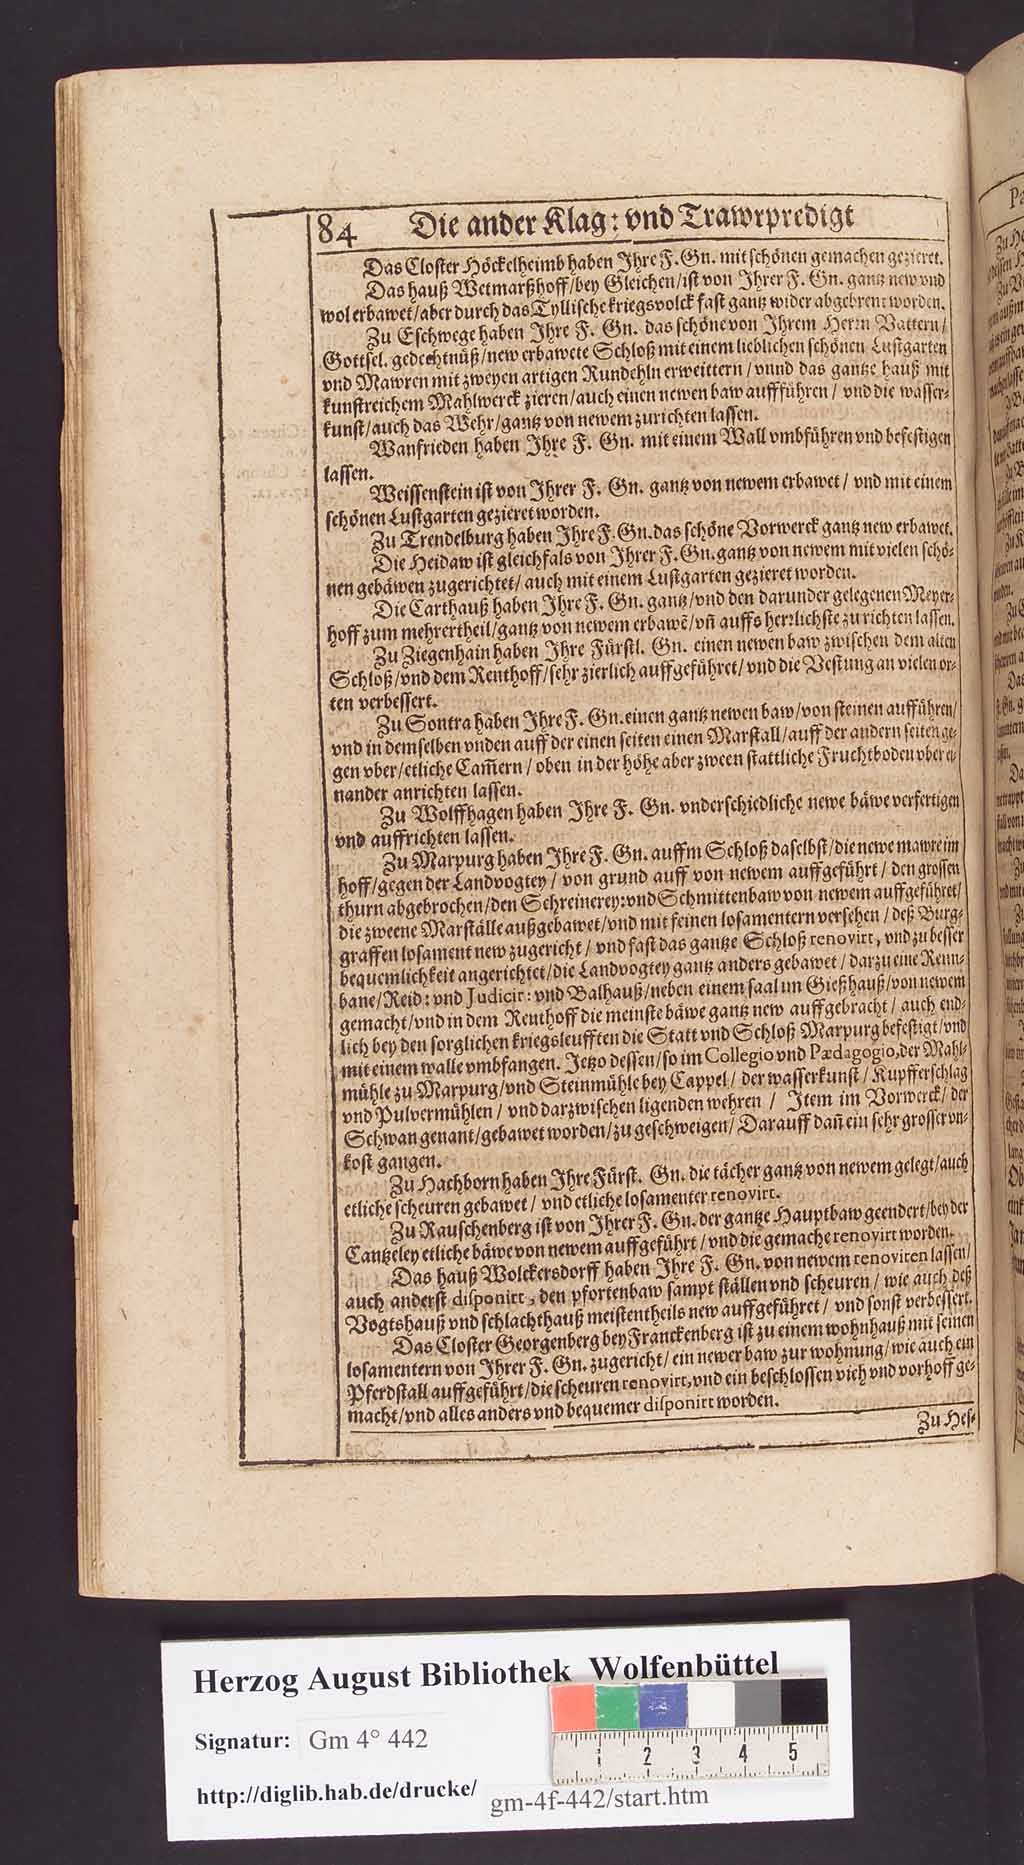 84 Die ander Klag: vnd Trawrpredigt
Das Closter Höckelheimb haben Ihre F. Gn. mit schönen gemachen gezieret.
Das hauß Wetmarßhoff/bey Gleichen/ist von Ihrer F. Gn. gantz new vnd
wol erbawet/aber durch das Tyllische kriegsvolck fast gantz wider abgebrent worden.
Zu Eschwege haben Ihre F. Gn. das schöne von Ihrem Herrn Vattern/
Gottsel. gedechtnüß/new erbawete Schloß mit einem lieblichen schönen Lustgarten
vnd Mawren mit zweyen artigen Rundehln erweittern/vnnd das gantze hauß mit
kunstreichem Mahlwerck zieren/auch einen newen baw aufführen/ vnd die wasser-
kunst/auch das Wehr/gantz von newem zurichten lassen.
Wanfrieden haben Ihre F. Gn. mit einem Wall vmbführen vnd befestigen
lassen.
Weissenstein ist von Ihrer F. Gn. gantz von newem erbawet/ vnd mit einem
schönen Lustgarten gezieret worden.
Zu Trendelburg haben Ihre F. Gn. das schöne Vorwerck gantz new erbawet.
Die Heidaw ist gleichfals von Ihrer F. Gn. gantz von newem mit vielen schö-
nen gebäwen zugerichtet/ auch mit einem Lustgarten gezieret worden.
Die Carthauß haben Ihre F. Gn. gantz/vnd den darunder gelegenen Meyer-
hoff zum mehrertheil/gantz von newem erbawẽ/vñ auffs herrlichste zu richten lassen.
Zu Ziegenhain haben Ihre Fürstl. Gn. einen newen baw zwischen dem alten
Schloß/vnd dem Renthoff/sehr zierlich auffgeführet/vnd die Vestung an vielen or-
ten verbessert.
Zu Sontra haben Ihre F. Gn. einen gantz newen baw/von steinen aufführen/
vnd in demselben vnden auff der einen seiten einen Marstall/auff der andern seiten ge-
gen vber/etliche Cam̃ern/oben in der höhe aber zween stattliche Fruchtboden vber ei-
nander anrichten lassen.
Zu Wolffhagen haben Ihre F. Gn. vnderschiedliche newe bäwe verfertigen
vnd auffrichten lassen.
Zu Marpurg haben Ihre F. Gn. auffm Schloß daselbst/die newe mawre im
hoff/gegen der Landvogtey/ von grund auff von newem auffgeführt/ den grossen
thurn abgebrochen/den Schreinerey: vnd Schmittenbaw von newem auffgeführet/
die zweene Marställe außgebawet/vnd mit feinen losamentern versehen/ deß Burg-
graffen losament new zugericht/ vnd fast das gantze Schloß renovirt, vnd zu besser
bequemlichkeit angerichtet/die Landvogtey gantz anders gebawet/ darzu eine Renn-
bane/Reid: vnd Judicir: vnd Balhauß/neben einem saal im Gießhauß/von newem
gemacht/vnd in dem Renthoff die meinste bäwe gantz new auffgebracht/ auch end-
lich bey den sorglichen kriegsleufften die Statt vnd Schloß Marpurg befestigt/vnd
mit einem walle vmbfangen. Jetzo dessen/so im Collegio vnd Pædagogio, der Mahl-
mühle zu Marpurg/vnd Steinmühle bey Cappel/ der wasserkunst/ Kupfferschlag
vnd Pulvermühlen/ vnd darzwischen ligenden wehren/ Item im Vorwerck/ der
Schwan genant/gebawet worden/zu geschweigen/ Darauff dañ ein sehr grosser vn-
kost gangen.
Zu Hachborn haben Ihre Fürst. Gn. die tächer gantz von newem gelegt/auch
etliche scheuren gebawet/ vnd etliche losamenter renovirt.
Zu Rauschenberg ist von Ihrer F. Gn. der gantze Hauptbaw geendert/bey der
Cantzeley etliche bäwe von newem auffgeführt/vnd die gemache renovirt worden.
Das hauß Wolckersdorff haben Ihre F. Gn. von newem renoviren lassen/
auch anderst disponirt, den pfortenbaw sampt ställen vnd scheuren/ wie auch deß
Vogtshauß vnd schlachthauß meistentheils new auffgeführet/ vnd sonst verbessert.
Das Closter Georgenberg bey Franckenberg ist zu einem wohnhauß mit seinen
losamentern von Ihrer F. Gn. zugericht/ ein newer baw zur wohnung/wie auch ein
Pferdstall auffgeführt/die scheuren renovirt, vnd ein beschlossen vieh vnd vorhoff ge-
macht/vnd alles anders vnd bequemer disponirt worden.
Zu Hes-
Herzog August Bibliothek Wolfenbüttel
Signatur: Gm 4° 442
http://diglib.hab.de/drucke/ gm-4f-442/start.htm
1 2 3 4 5